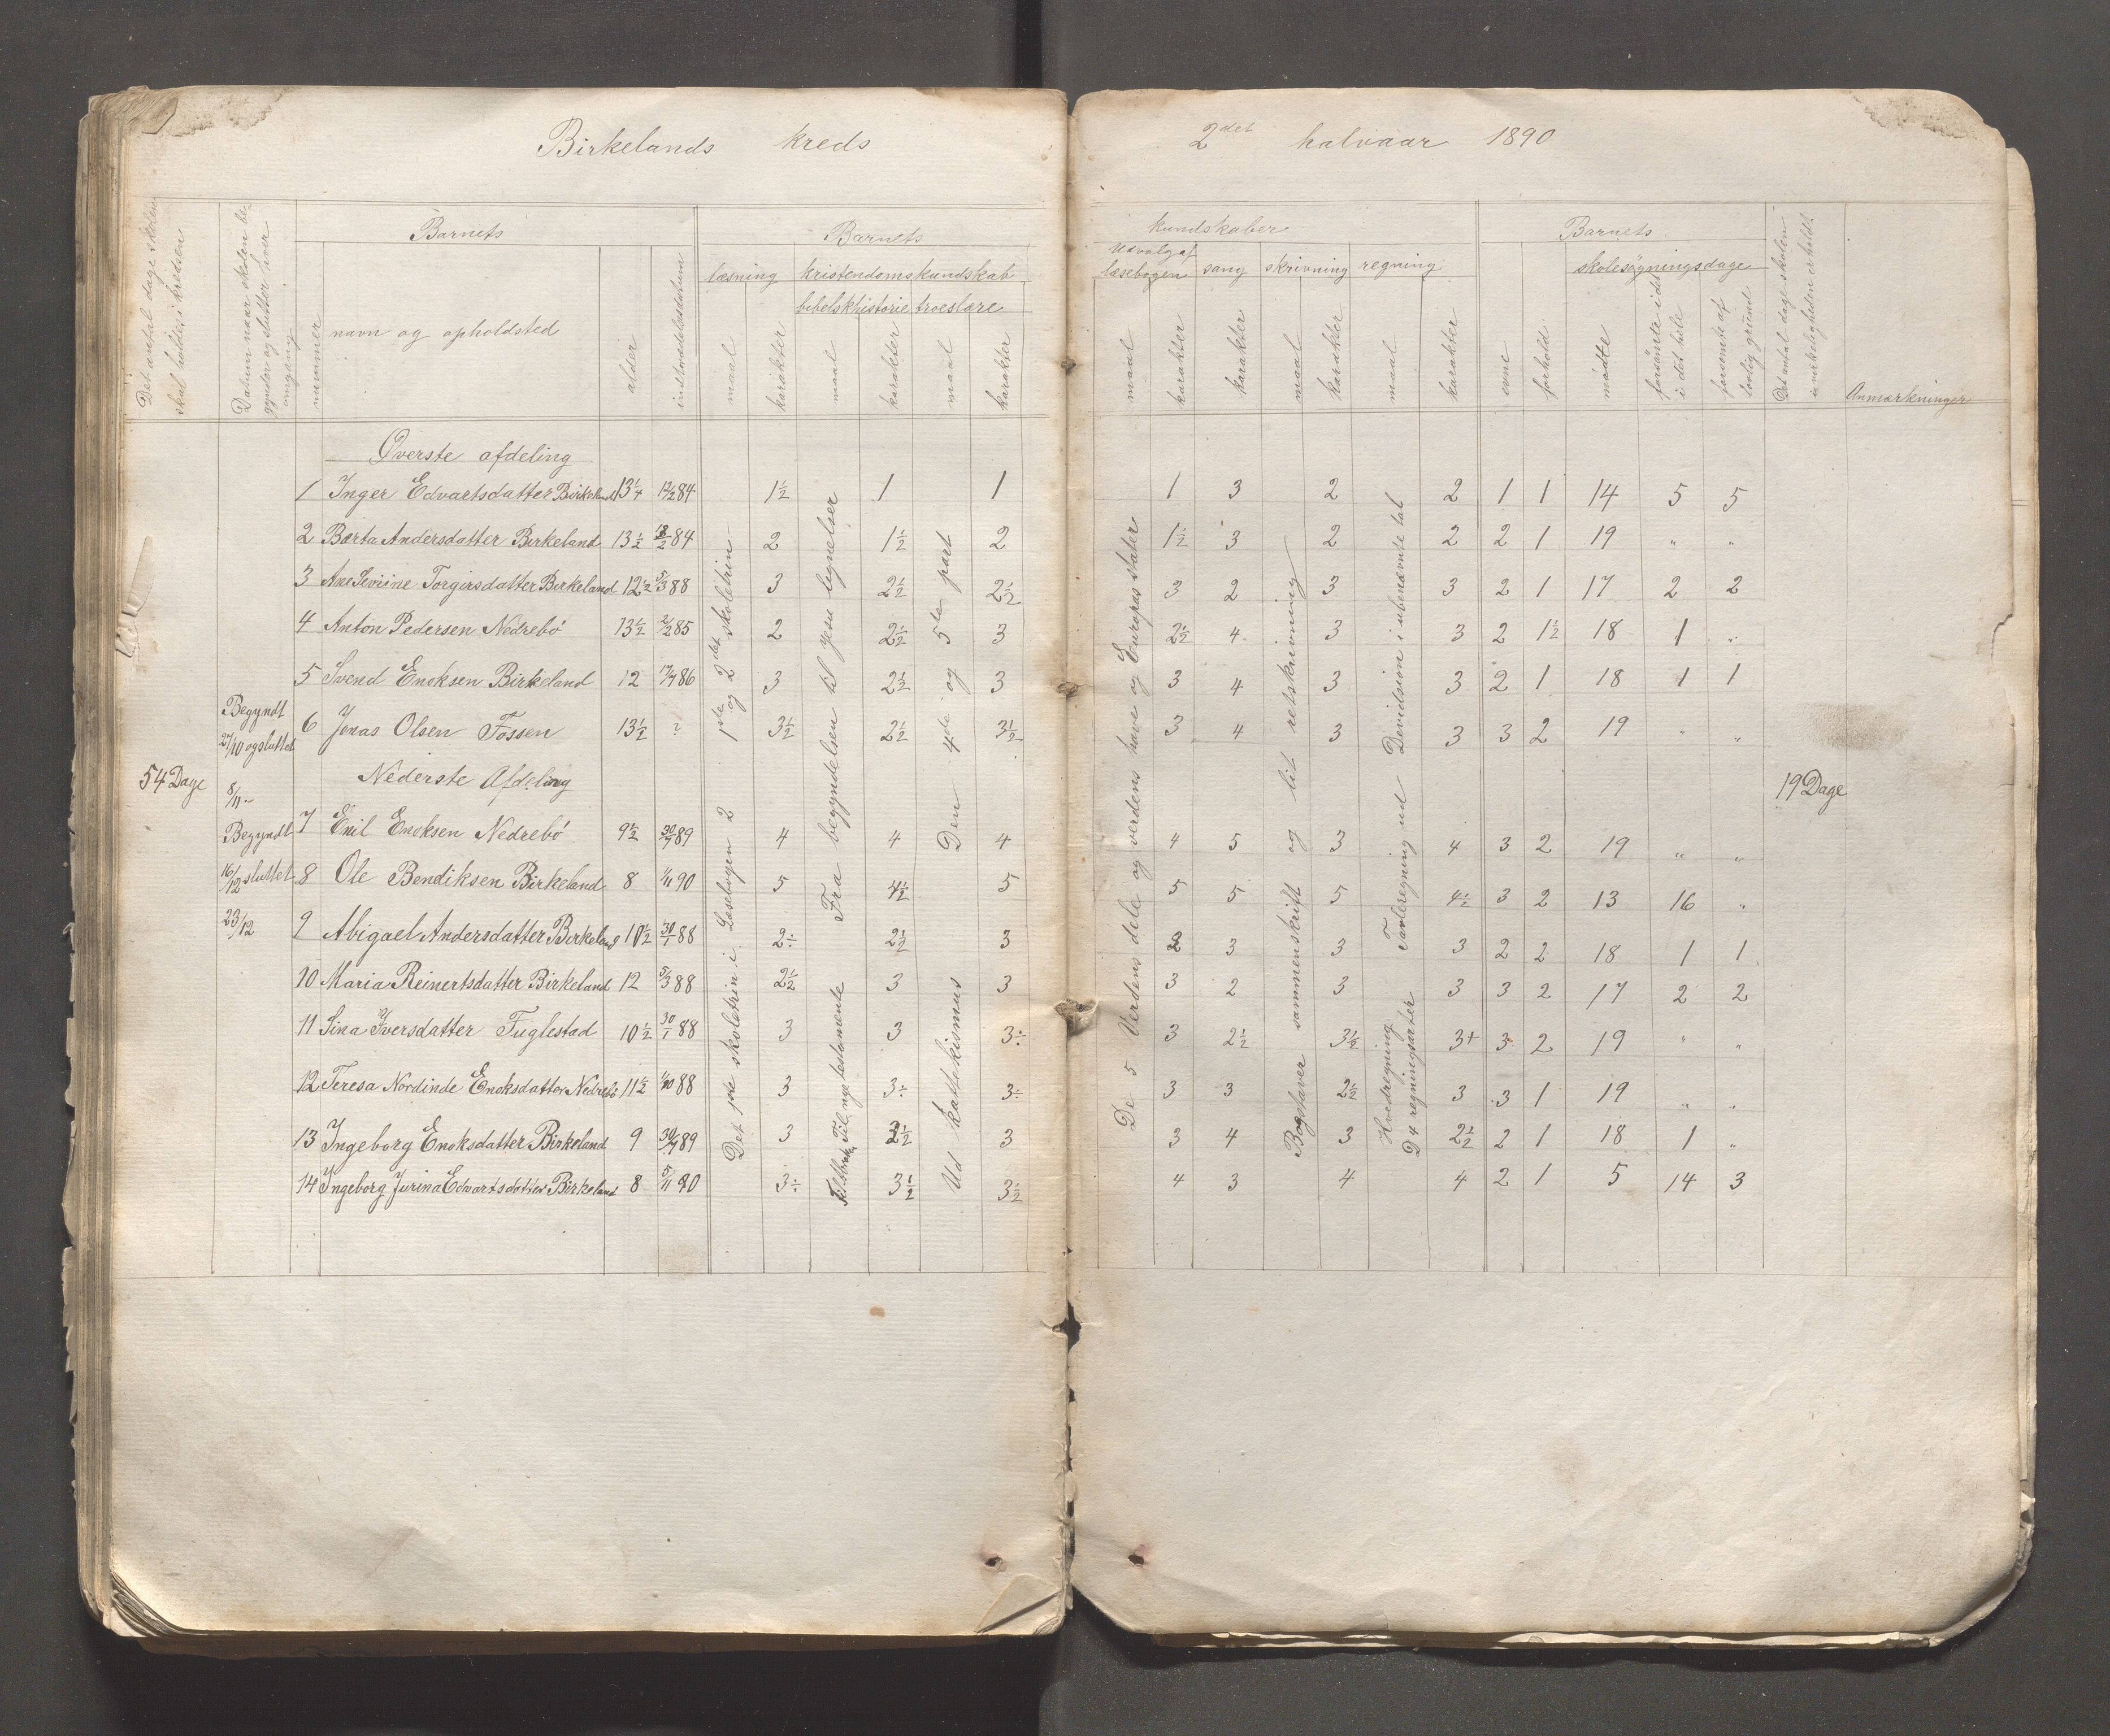 Birkelands kreds
2det halvaar 1890
Det antal dage skolen skal holdes i kredsen
Datum naar skolen begynder og slutter hver omgang
nummer
Barnets
navn og opholdsted
alder
indtrædelsesdatum
Barnets
læsning
kristendomskundskab
bibelskhistorie
troeslære
maal
karakter
maal
karakter
maal
karakter
kundskaber
Udvalg af læsebogen
sang
skrivning
regning
maal
karakter
karakter
maal
karakter
maal
karakter
Barnets
evne
forhold
skolesøgningsdage
mødte
forsømte i det hele
forsømte af lovlig grund
Det antal dage skolen i virkeligheden er holdt
Anmærkninger
Øverste afdeling
1 Inger Edvartsdatter Birkeland 13¼ 12/2 84 1½ 1 1 1 3 2 2 1 1 14 5 5
2 Bærta Andersdatter Birkeland 13½ 18/2 84 2 1½ 2 1½ 3 2 2 2 1 19 " "
3 Ane Seviine Torgirsdatter Birkeland 12½ 5/3 88 3 2½ 2½ 3 2 3 3 2 1 17 2 2
4 Anton Pedersen Nedrebø 13½ 2/2 85 2 2½ 3 2½ 4 3 3 2 1½ 18 1 "
5 Svend Enoksen Birkeland 12 17/7 86 3 2½ 3 3 4 3 3 2 1 18 1 1
6 Jonas Olsen Fossen 13½ ? 3½ 2½ 3½ 3 4 3 3 3 2 19 " "
Nederste Afdeling
7 Emil Enoksen Nedrebø 9½ 30/7 89 4 4 4 4 5 3 4 3 2 19 " "
8 Ole Bendiksen Birkeland 8 1/11 90 5 4½ 5 5 5 5 4½ 3 2 13 16 "
9 Abigael Andersdatter Birkeland 10½ 30/1 88 2÷ 2½ 3 2 3 3 3 2 2 18 1 1
10 Maria Reinertsdatter Birkeland 12 5/3 88 2½ 3 3 3 2 3 3 3 2 17 2 2
11 Sina Iversdatter Fuglestad 10½ 30/1 88 3 3 3÷ 3 2½ 3½ 3+ 3 2 19 " "
12 Teresa Nordinde Enoksdatter Nedrebø 11½ 1/10 88 3 3÷ 3÷ 3 3 2½ 3 3 1 19 " "
13 Ingeborg Enoksdatter Birkeland 9 30/7 89 3 3½ 3 3 4 3 2½ 2 1 18 1 "
14 Ingeborg Jurina Edvartsdatter Birkeland 8 5/11 90 3÷ 3½ 3½ 4 3 4 4 2 1 5 14 3
54 Dage
Begyndt
27/10 og sluttet
8/11
Begyndt
16/12 sluttet
23/12
Det 1ste skoletrin i Læsebogen 2
1ste og 2det skoletrin
Fra begyndelsen til Jesu lignelser
Til nye testamente
Den 4de og 5te part
Ud kattekismus
De 5 Verdens dele og verdens have og Europas stater
Bogstaver sammenskrift og lit retskrivning
Tavleregning ud Devidsion i ubenævnte tal
Hvedregning
D 4 regningsarter
19 Dage